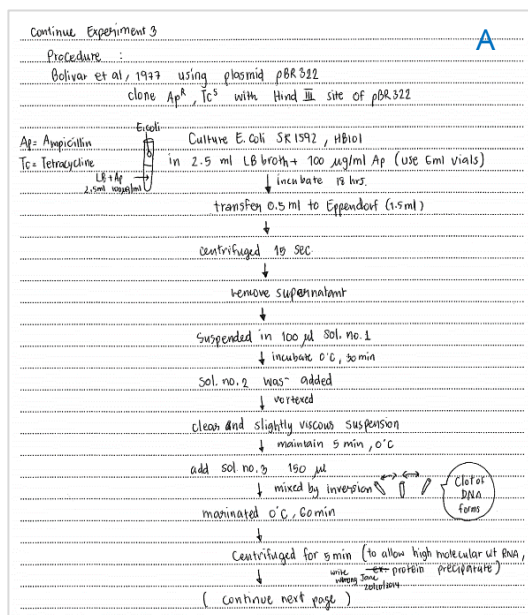 Continue Experiment 3
A
Procedure :
Bolivar et al, 1977 using plasmid pBR322
clone Ap^R, Tc^S with Hind III site of pBR322
E.coli
Ap = Ampicillin
Tc = Tetracycline
LB + Ap
2.5ml 100µg/ml
Culture E.coli SK1592, HB101
in 2.5 ml LB broth + 100 µg/ml Ap (use 6ml vials)
incubate 18 hrs.
transfer 0.5 ml to Eppendorf (1.5ml)
centrifuged 15 sec.
remove supernatant
Suspended in 100 µl Sol. no. 1
incubate 0°C, 30 min
Sol. no. 2 was added
vortexed
clear and slightly viscous suspension
maintain 5 min, 0°C
add sol no. 3 150 µl
mixed by inversion
Clot of
DNA
forms
marinated 0°C, 60 min
Centrifuged for 5 min (to allow high molecular wt RNA,
ex. protein precipatate)
write
wrong Jane
20/10/2014
( continue next page )